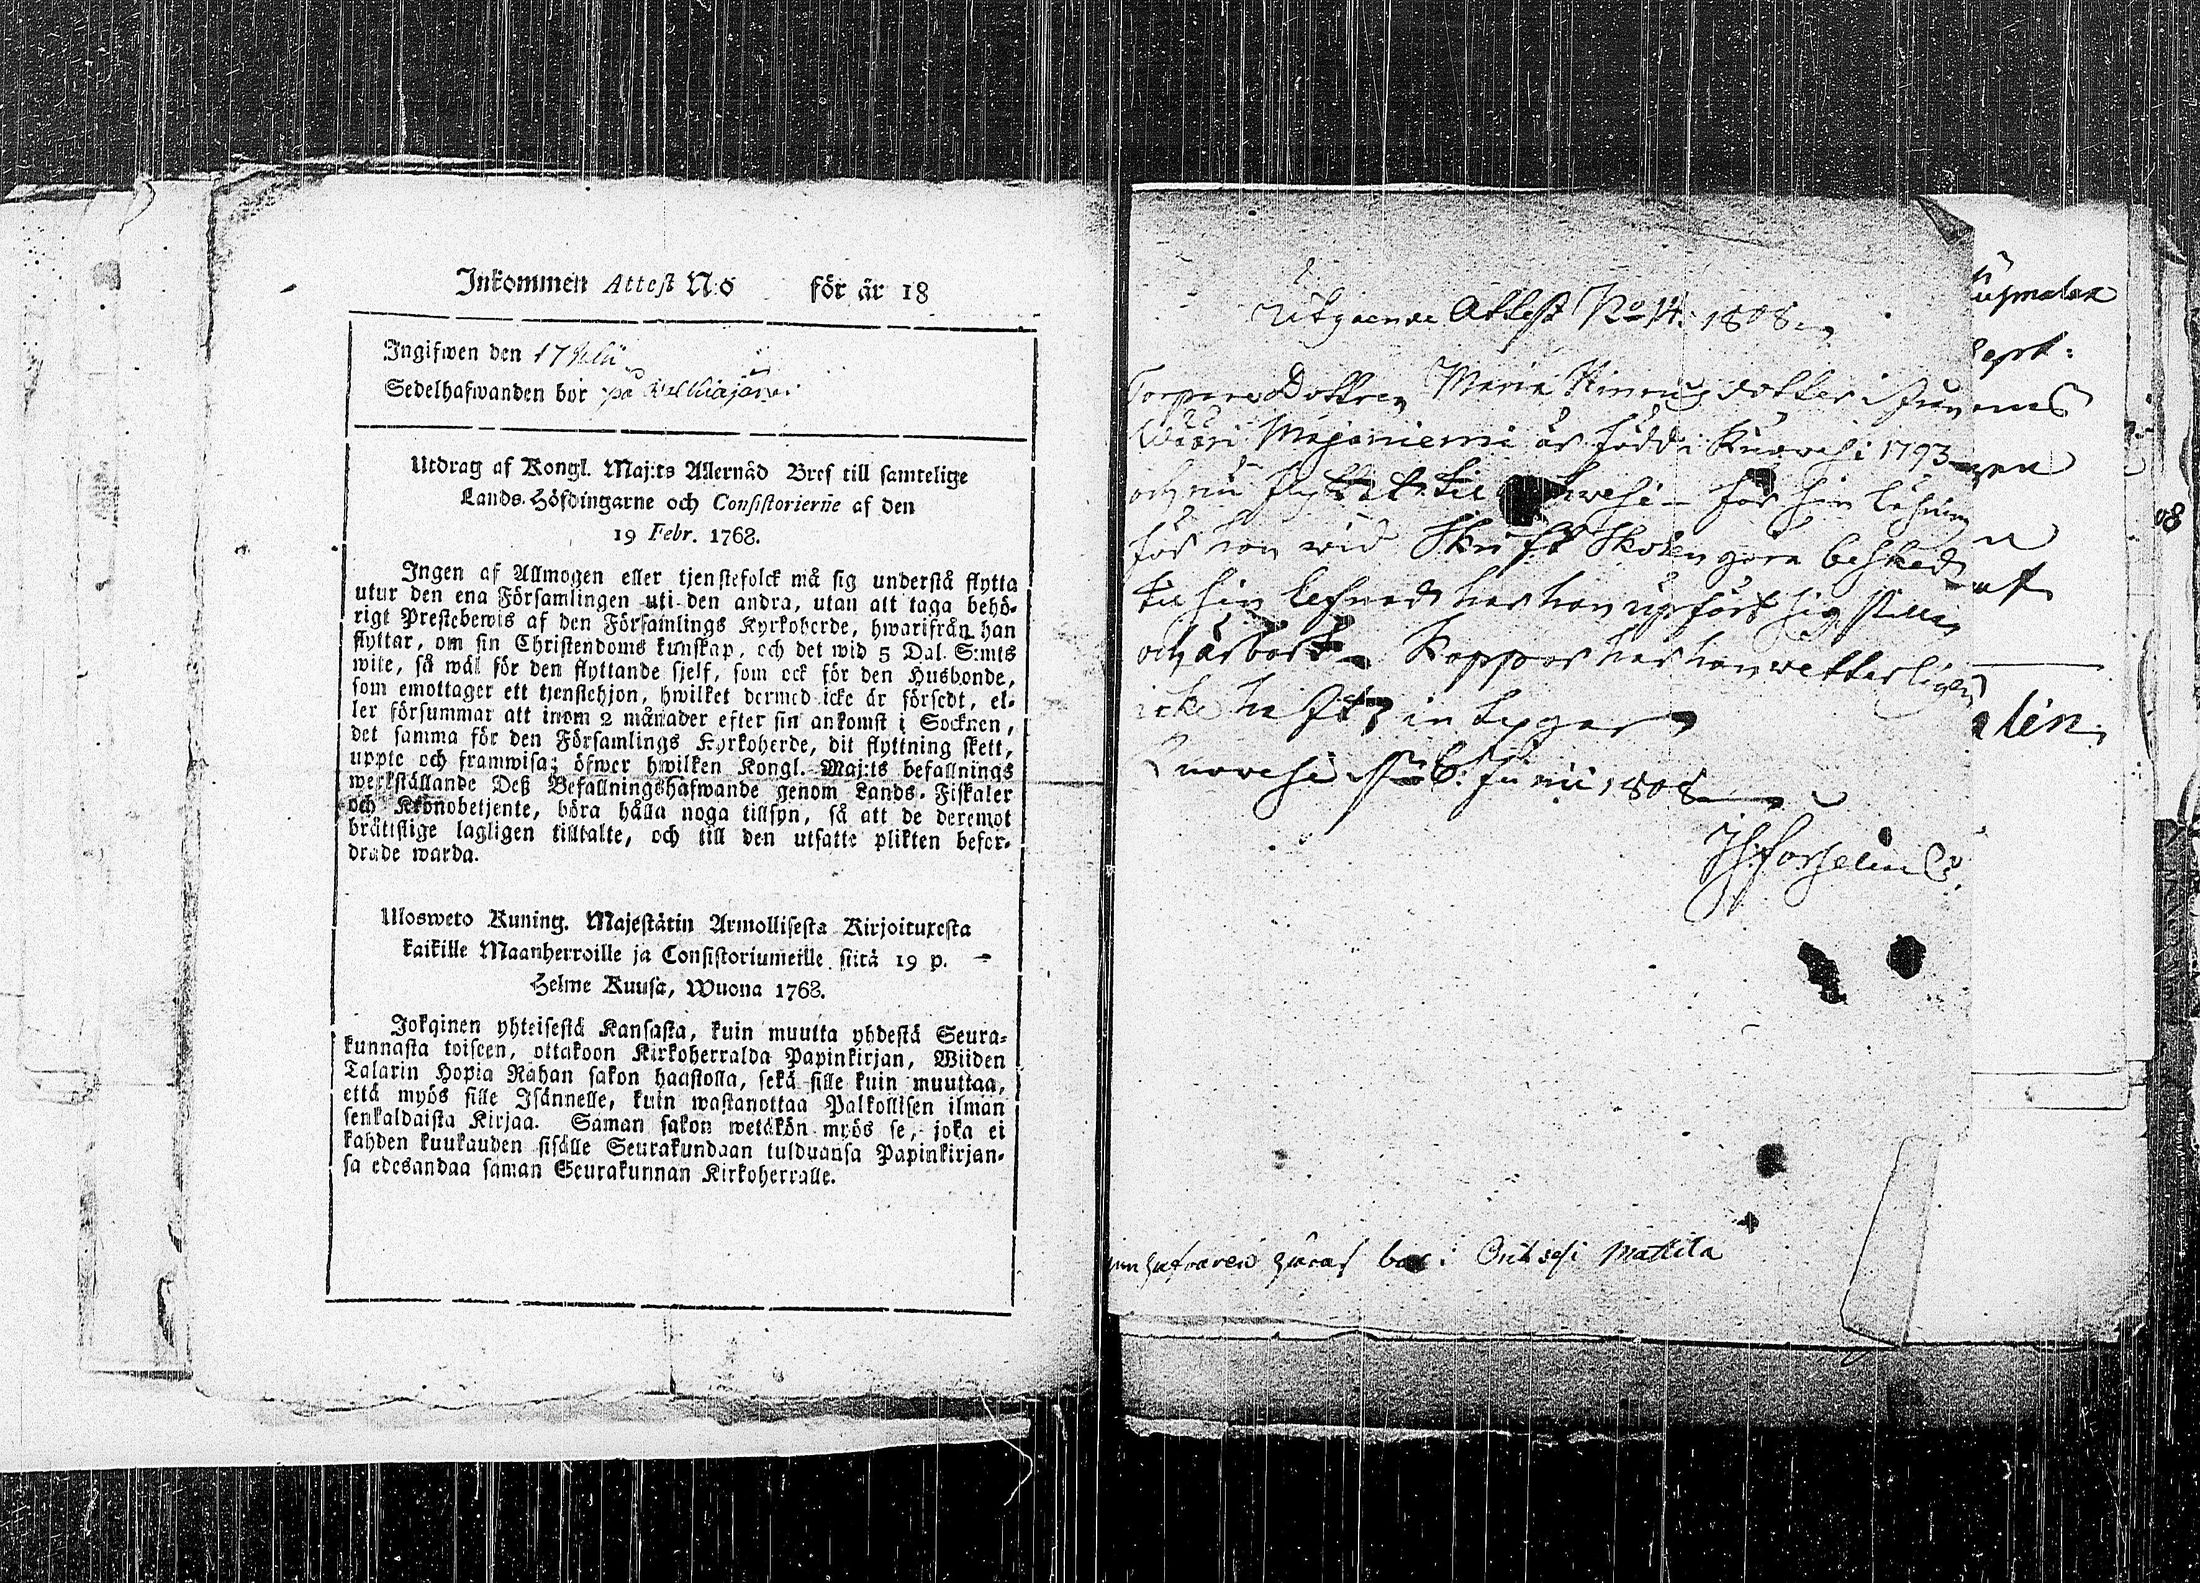 Inkommen Attest N:o för år 18
Ingifwen den 17 Julii
Sedelhafwanden bor på
Utdrag af Kongl. Maj:ts Allernåd Bref till samtelige
Lands-Höfdingarne och Consistorierne af den
19 Febr. 1768.
Ingen af Allmogen eller tjenstefolck må sig understå flytta
utur den ena Församlingen uti den andra, utan att taga behö-
rigt Prestebewis af den Församlings Kyrkoherde, hwarifrån han
flyttar, om sin Christendoms kunskap, och det wid 5 Dal. S:mts
wite, så wäl för den flyttande sjelf, som ock för den Husbonde,
som emottager ett tjenstehjon, hwilket dermed icke är försedt, el-
ler försummar att inom 2 månader efter sin ankomst i Socknen,
det samma för den Församlings Kyrkoherde, dit flyttning skett,
uppte och framwisa; öfwer hwilken Kongl. Maj:ts befallnings
werkställande Deß Befallningshafwande genom Lands-Fiskaler
och Kronobetjente, böra hålla noga tillsyn, så att de deremot
bråttslige lagligen tilltalte, och till den utsatte plikten befor-
drade warda.
Ulosweto Kuning. Majestätin Armollisesta Kirjoituxesta
kaikille Maanherroille ja Consistoriumeille siitä 19 p.
Helme Kuusa, Wuona 1768.
Jokainen yhteisestä Kansasta, kuin muutta yhdestä Seura-
kunnasta toiseen, ottakoon Kirkoherralda Papinkirjan, Wiiden
Talarin Hopia Rahan sakon haastolla, sekä sille kuin muuttaa,
että myös sille Isännelle, kuin wastanottaa Palkollisen ilman
senkaldaista Kirjaa. Saman sakon wetäkön myös se, joka ei
kahden kuukauden sisälle Seurakundaan tulduansa Papinkirjan-
sa edesandaa saman Seurakunnan Kirkoherralle.
Utgående Attest No 14. 1808
Dottren Maria Hinrichsdotter i
Majaniemi är född i Kuorvesi 1793
och nu flyttat til för sin läsning
får hon wid Skrift Skolen göra besked
til sin lefnad har hon upfört sig stilla
och ärbart. Koppor har hon wetterligen
icke haft in
Kuorvesi Junii 1808
bor i Mattila